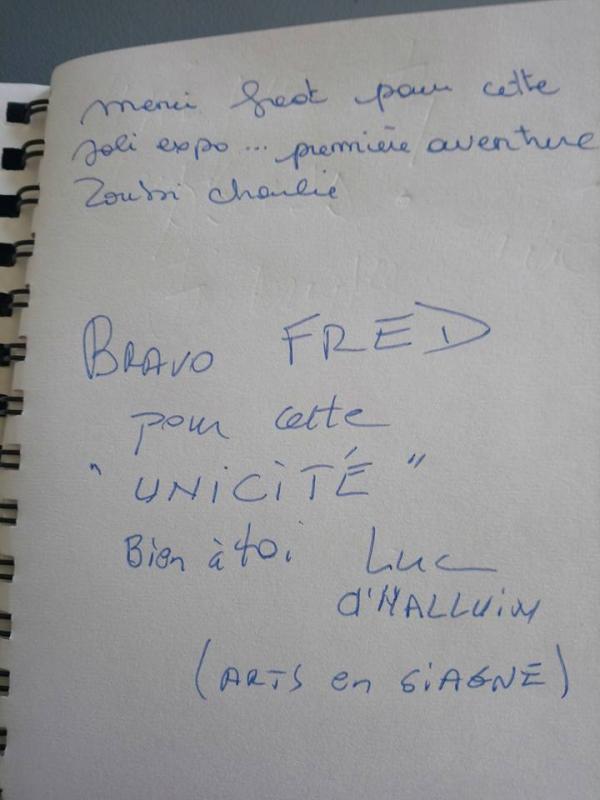 merci fred pour cette
joli expo... première aventure
charlie
BRAVO FRED
pour cette
"UNICITÉ"
Bien à toi Luc
d'HALLUIN
(ARTS en SIAGNE)